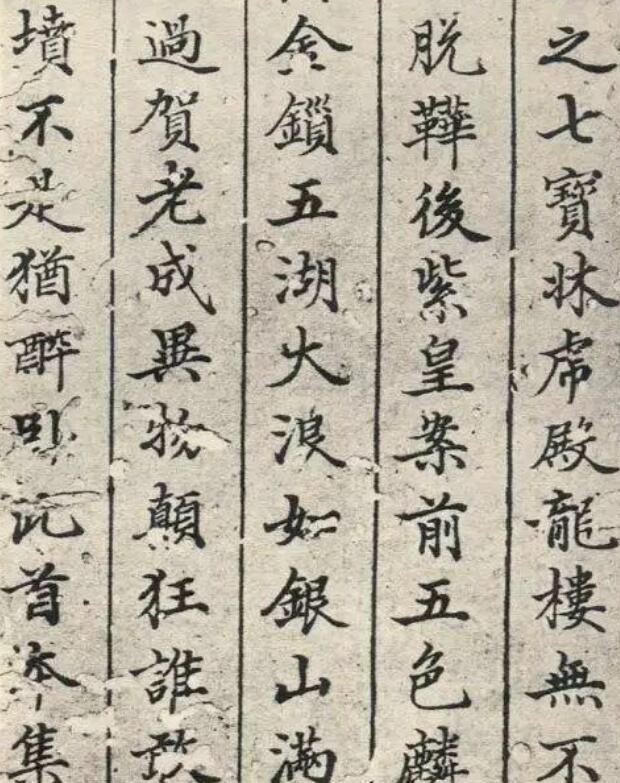 之七寶牀虎殿龍樓無不
脫鞾後紫皇案前五色麟
金鎖五湖大浪如銀山滿
過賀老成異物顛狂誰敢
墳不是猶醉吟此首本集